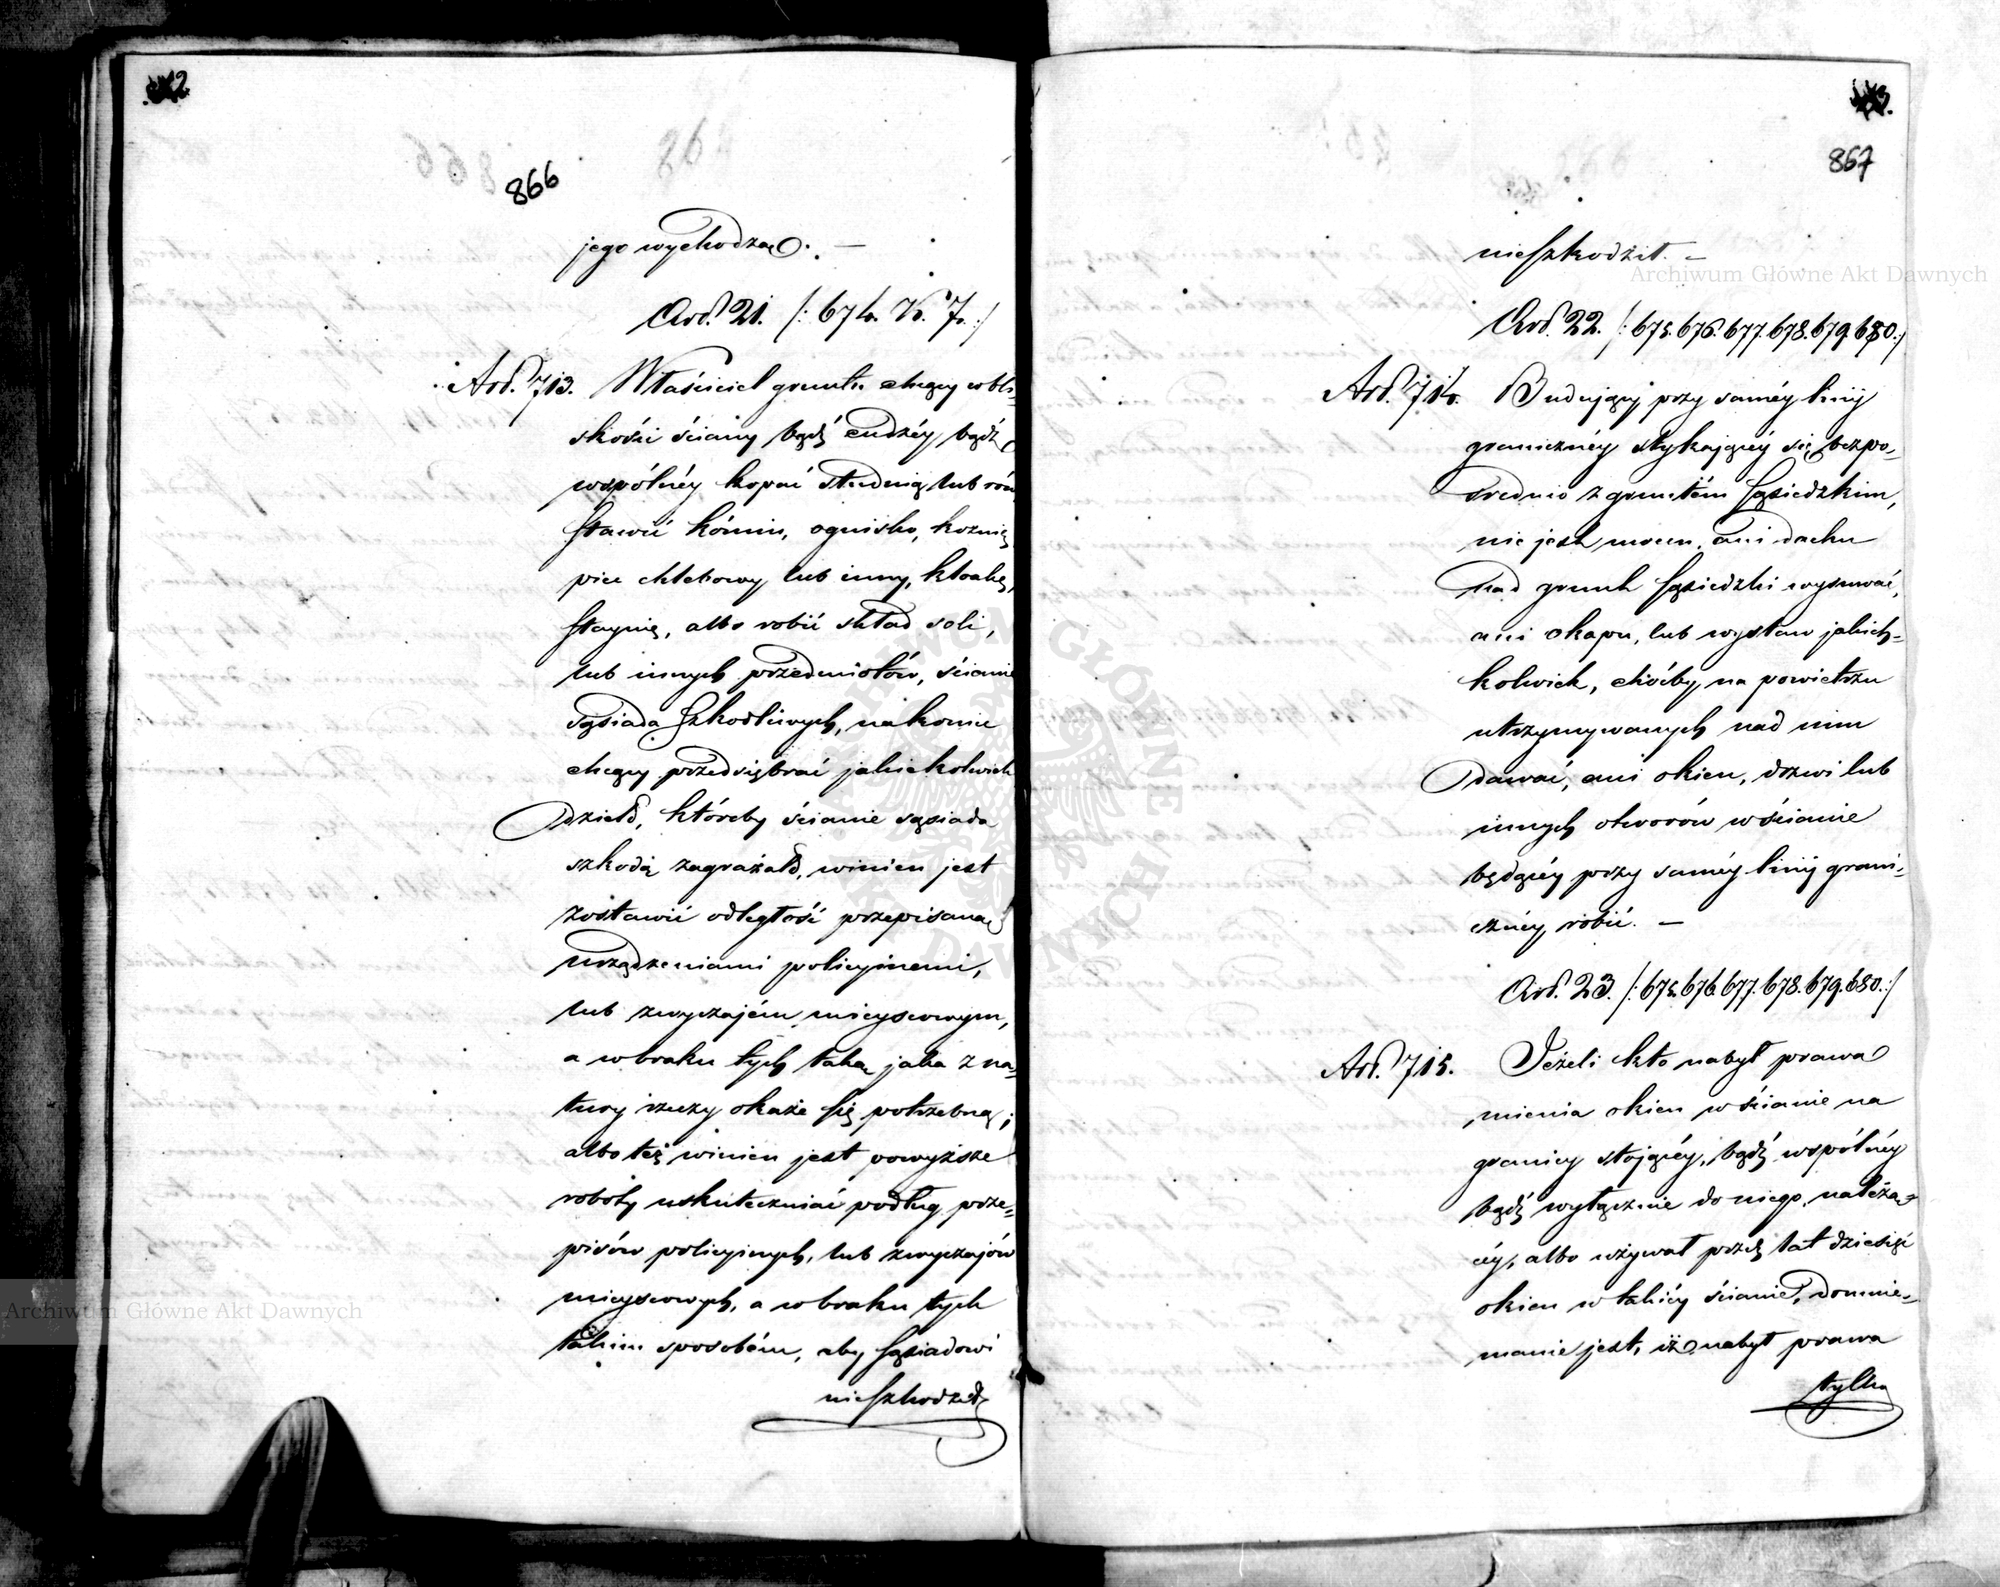 866
jego wychodzą. —
Art. 21. /: 674. K. 7. :/
Art. 713. Właściciel gruntu chcący w bli-
skości ściany bądź cudzéy bądź
wspólnéy kopać studnię lub rów
stawić kómin, ognisko, kuznię
piec chlebowy lub inny, kloakę,
staynię, albo robić skład soli,
lub innych przedmiotów, ścianie
sąsiada szkodliwych, nakoniec
chcący przedsiębrać jakiekolwiek
dzieło, któreby ścianie sąsiada
szkodą zagrażało, winien jest
zostawić odległość przepisaną
urządzeniami policyinemi,
lub zwyczajem mieyscowym,
a w braku tych taką jaka z na-
tury rzeczy okaże się potrzebną;
albo też winien jest powyższe
roboty uskuteczniać podług prze-
pisów policyinych, lub zwyczajów
mieyscowych, a w braku tych
takim sposobém, aby sąsiadowi
nieszkodził
867
nieszkodził. —
Art. 22. /: 675. 676. 677. 678. 679. 680. :/
Art. 714. Budujący przy saméy linij
granicznéy stykającéy się bezpo-
srednio z gruntém sąsiedzkim,
nie jest mocen, ani dachu
nad grunt sąsiedzki wysuwać,
ani okapu, lub wystaw jakich-
kolwiek, choćby na powietrzu
utrzymywanych nad nim
dawać, ani okien, drzwi lub
innych otworów w ścianie
będącéy przy saméy linij grani-
cznéy robić. —
Art. 23. /: 675. 676. 677. 678. 679. 680. :/
Art. 715. Jeżeli kto nabył prawa
mienia okien w ścianie na
granicy stojącéy, bądź wspólnéy
bądź wyłącznie do niego należą-
céy, albo używał przez lat dziesięć
okien w takiéy ścianie, domnie-
manie jest, iż nabył prawa
tylko
Archiwum Główne Akt Dawnych
Archiwum Główne Akt Dawnych